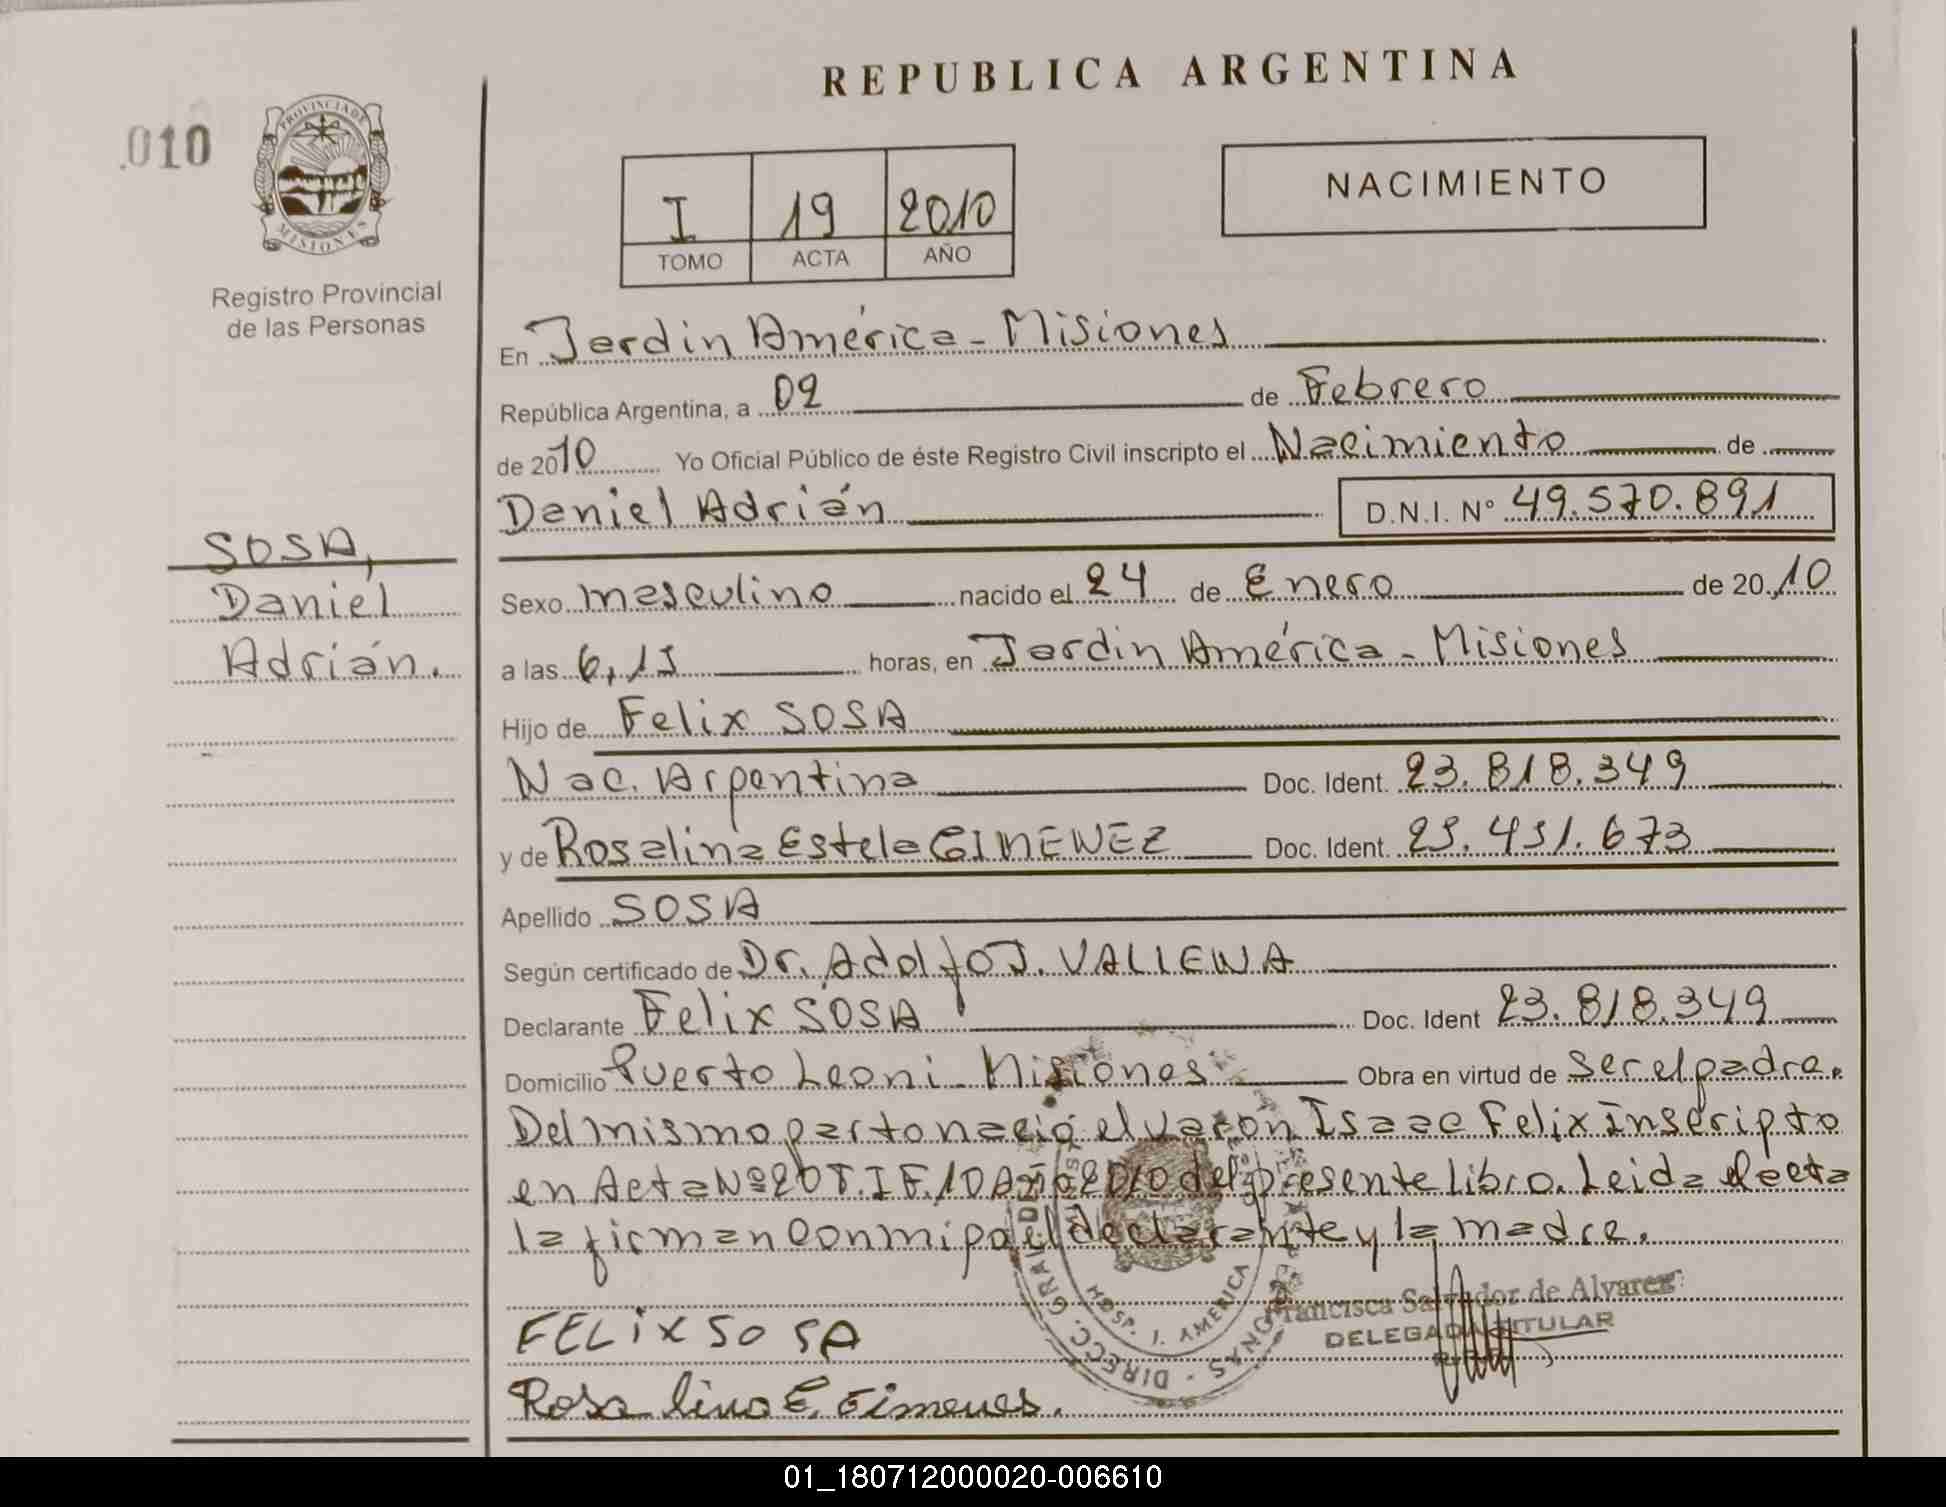 REPUBLICA ARGENTINA
010
PROVINCIA DE
MISIONES
Registro Provincial
de las Personas
I 19 2010
TOMO ACTA AÑO
NACIMIENTO
En Jardin América - Misiones
República Argentina, a 02 de Febrero
de 2010 Yo Oficial Público de éste Registro Civil inscripto el Nacimiento de
Daniel Adrián D.N.I. Nº 49.570.891
SOSA,
Daniel
Adrián.
Sexo masculino nacido el 24 de Enero de 2010
a las 6,15 horas, en Jardin América - Misiones
Hijo de Felix SOSA
Nac. Argentina Doc. Ident. 23.818.349
y de Rosalina Estela GIMENEZ Doc. Ident. 25.431.673
Apellido SOSA
Según certificado de Dr. Adolfo J.
Declarante Felix SOSA Doc. Ident 23.818.349
Domicilio Puerto Leoni - Misiones Obra en virtud de ser el padre.
Del mismo parto nació el varón Isaac Felix Inscripto
en Acta Nº 20 T. I F. 10 Año 2010 del presente libro. Leida el acta
la firman conmigo el declarante y la madre.
Francisca Salvador de Alvarez
DELEGADA TITULAR
FELIX SOSA
Rosalina E. Gimenes.
HOSP. J. AMERICA
01_180712000020-006610